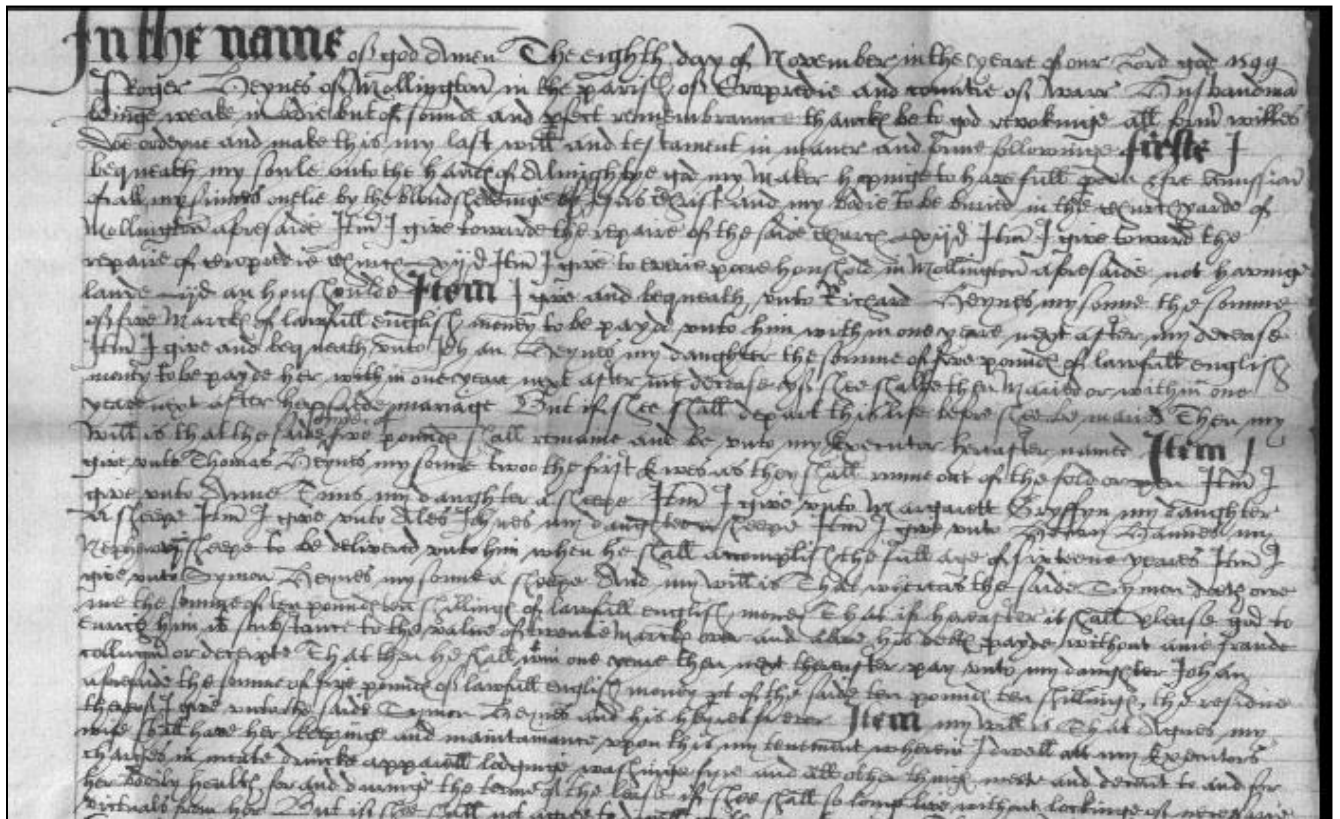 In the name of god Amen The eighth day of November in the yeare of our Lord god 1599
I Roger Heynes of Mollington in the parish of Cropredie and countie of Warr Husbandma
beinge weake in bodie but of sounde and pfect remembraunce thanck be to god revokinge all form willes
doe ordeyne and make this my last will and testament in maner and forme followinge firste I
bequeath my soule unto the hands of Almightye god my Maker hopinge to have full pdon & free remission
of all my sinnes onelie by the bloudsheddinge of Jesus Christ and my bodie to be buried in the churchyarde of
Mollington aforesaide Itm I give towarde the repaire of the saide church xijd Itm I give toward the
repaire of Cropredie church xijd Itm I give to everie poore houshold in Mollington aforesaide not havinge
lande ijd an houshoulde Item I give and bequeath unto Richard Heynes my sonne the somme
of five Marck of lawfull english money to be payde unto him within one yeare next after my decease
Itm I give and bequeath unto Johan Heynes my daughter the somme of five pounds of lawfull english
money to be payde her within one yeare next after my decease if shee shalbe then Maried or within one
yeare next after her mariage But if shee shall depart this life before shee be maried Then my
will is that the saide five pounds shall remaine and be unto my Executor hereafter named Item I
give unto Thomas Heynes my sonne twoe the first Ewes as they shall runne out of the fold or pen Itm I
give unto Anne my daughter a sheepe Itm I give unto Margarett Gryffyn my daughter
a sheepe Itm I give unto Ales Johnes my daughter a sheepe Itm I give unto Henry Hannes my
Nephew a sheepe to be delivered unto him when he shall accomplish the full age of sixteene yeares Itm I
give unto Symon Heynes my sonne a sheepe And my will is That whereas the saide Symon doth owe
me the somme of ten pounds ten shillings of lawfull english money That if hereafter it shall please god to
enrich him in substance to the value of twentie Marck over and above his debts payde without anie fraude
collusion or deceipte That then he shall wthin one yeare then next thereafter pay unto my daughter Johan
aforesaide the somme of five pounds of lawfull english money pt of the saide ten pounds ten shillings, the residue
thereof I give unto the saide Symon Heynes and his heires for ever Item my will is That Agnes my
wife shall have her keepinge and maintainance upon this my tenement wherein I dwell att my Executors
charges in meate drincke apparell lodginge washinge fyre and all other things meete and decent to and for
her bodily health for and during the terme of the lease if shee shall so longe live without lackinge of necessarie
victuals from her But if shee shall not agree to dwell